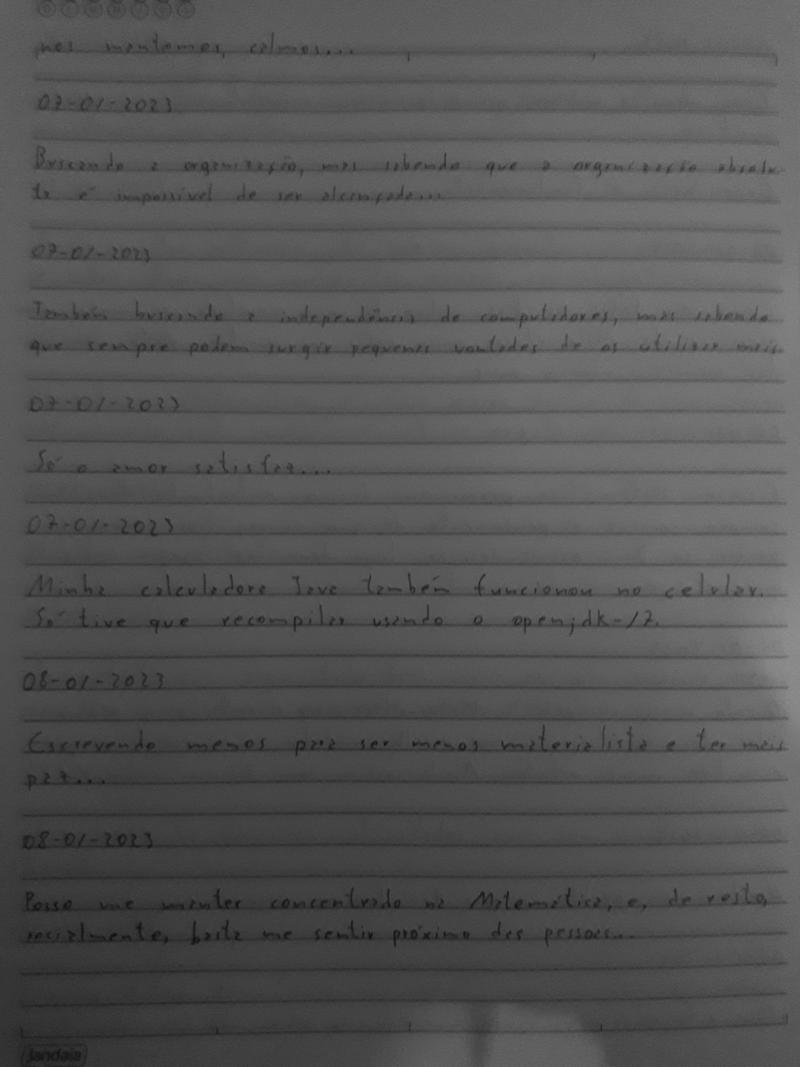 nos mantemos, calmos...
07-01-2023
Buscando a organização, mas sabendo que a organização absolu-
ta é impossível de ser alcançada...
07-01-2023
Também buscando a independência de computadores, mas sabendo
que sempre podem surgir pequenas vontades de os utilizar mais.
07-01-2023
Só o amor satisfaz...
07-01-2023
Minha calculadora Java também funcionou no celular.
Só tive que recompilar usando o openjdk-17.
08-01-2023
Escrevendo menos para ser menos materialista e ter mais
paz...
08-01-2023
Posso me manter concentrado na Matemática, e, de resto,
socialmente, basta me sentir próximo das pessoas...
jandaia